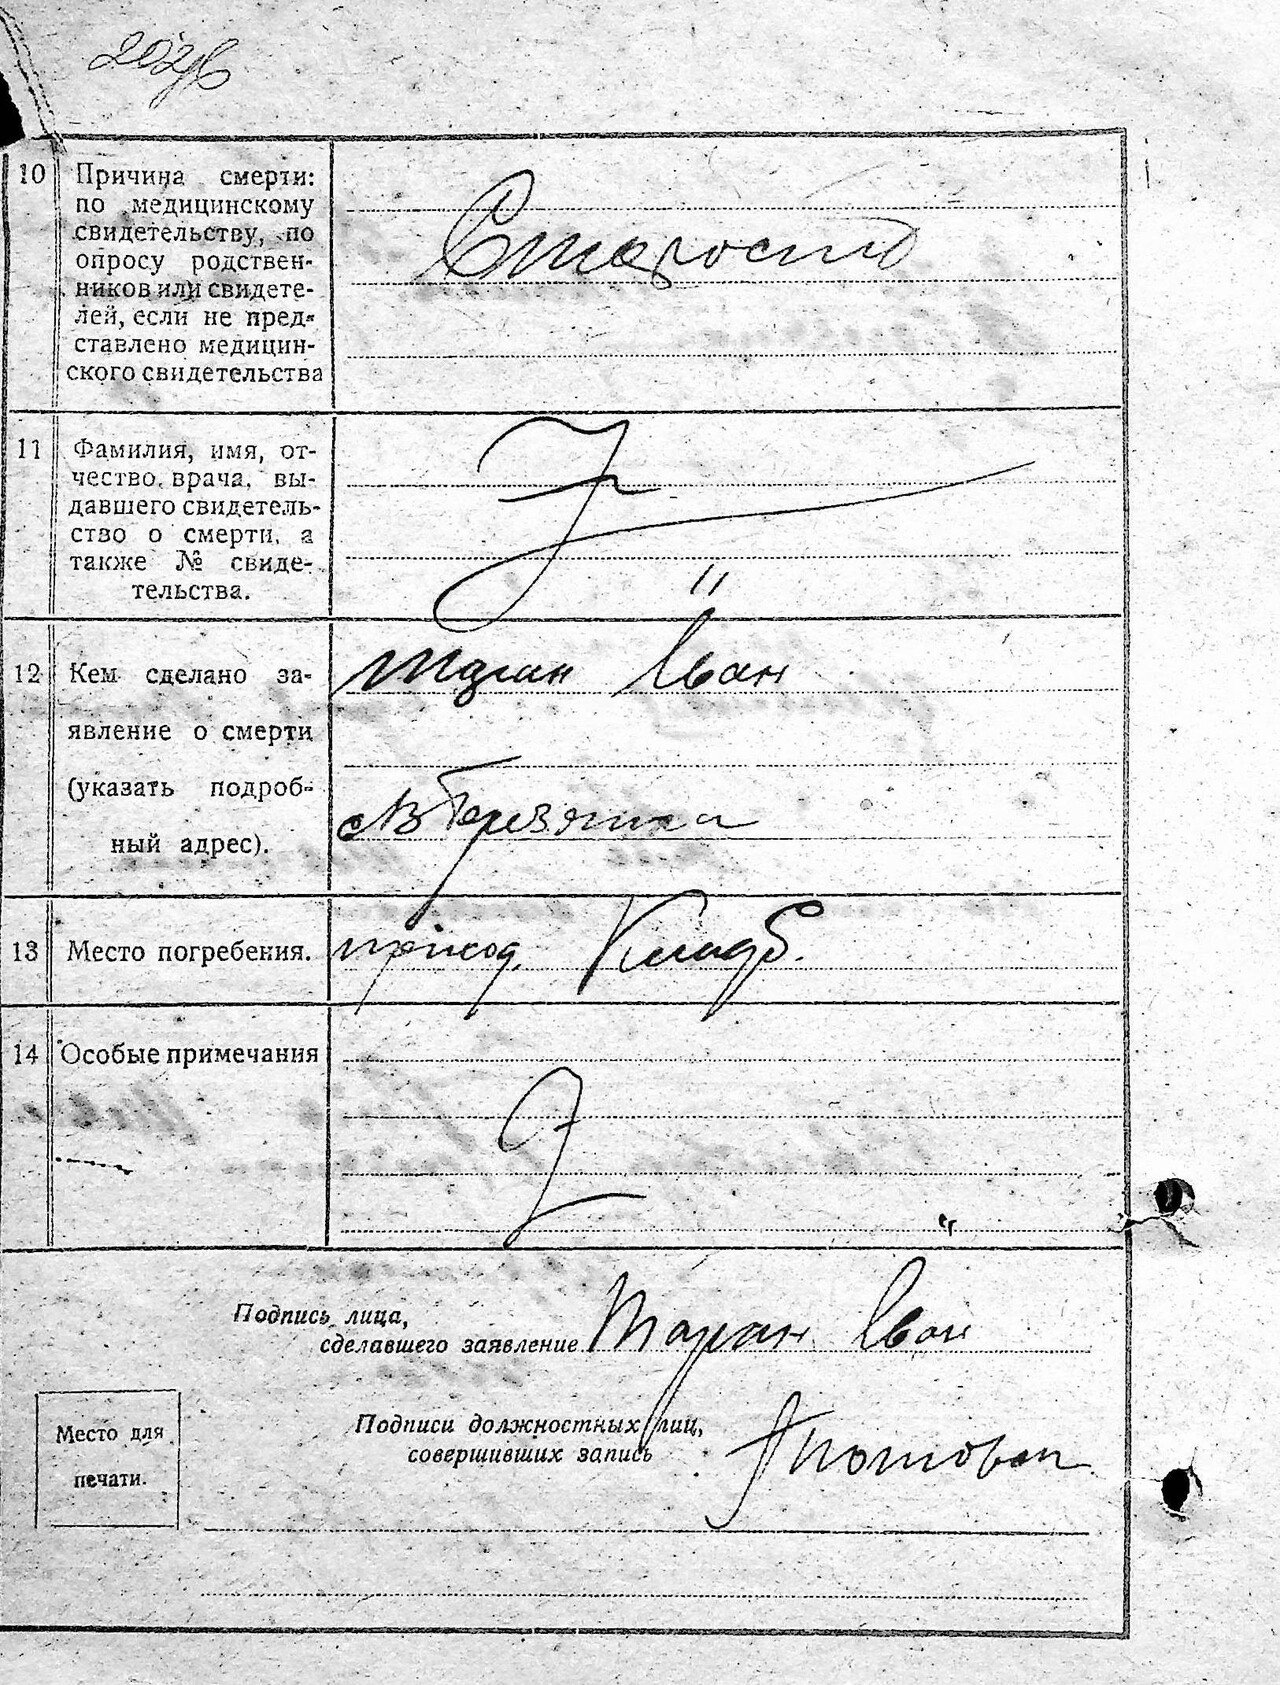 10 Причина смерти:
по медицинскому
свидетельству, по
опросу родствен-
ников или свидете-
лей, если не пред-
ставлено медицин-
ского свидетельства
Старость
11 Фамилия, имя, от-
чество, врача, вы-
давшего свидетель-
ство о смерти, а
также № свиде-
тельства.
12 Кем сделано за-
явление о смерти
(указать подроб-
ный адрес).
Таран Іван
13 Место погребения.
приход. Кладб.
14 Особые примечания
Подпись лица,
сделавшего заявление Таран Іван
Подписи должностных лиц,
совершивших запись
Место для
печати.